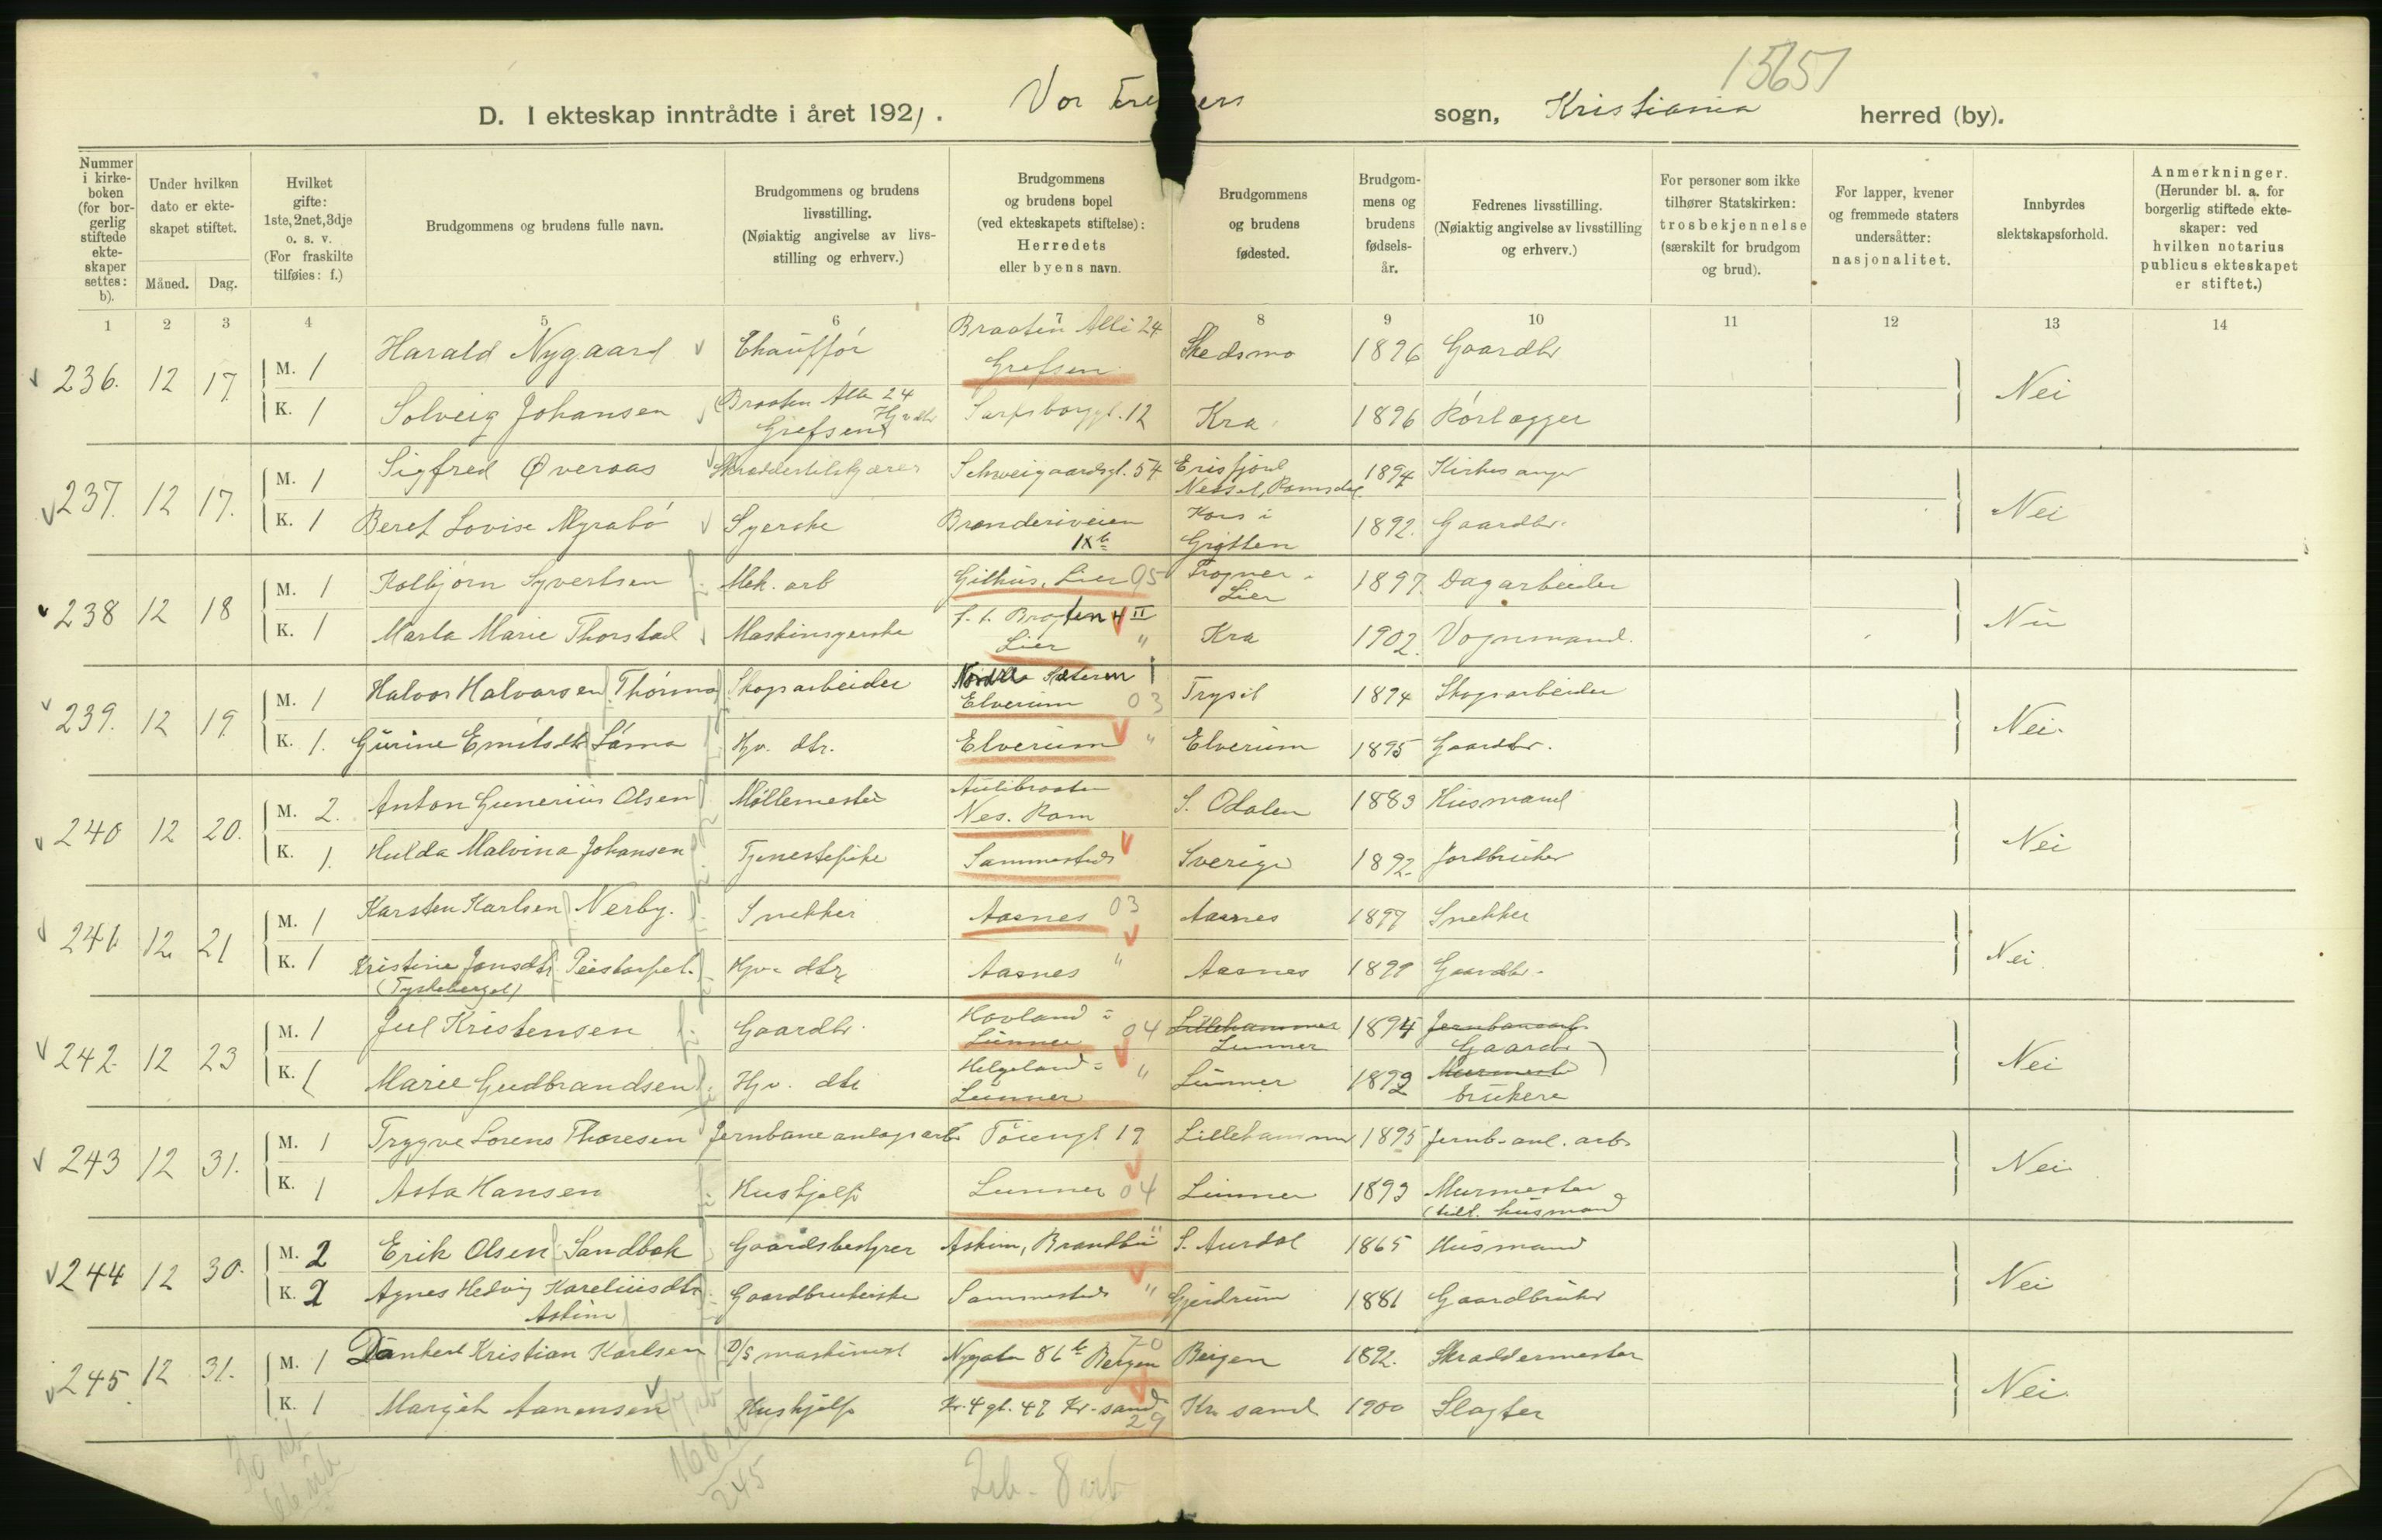 15651
D. I ekteskap inntrådte i året 1921. Vor Fre ers sogn, Kristiania herred (by).
Nummer i kirkeboken (for borgerlig stiftede ekteskaper settes: b).
Under hvilken dato er ekteskapet stiftet.
Måned. Dag.
Hvilket gifte: 1ste, 2net, 3dje o. s. v. (For fraskilte tilføies: f.)
Brudgommens og brudens fulle navn.
Brudgommens og brudens livsstilling. (Nøiaktig angivelse av livsstilling og erhverv.)
Brudgommens og brudens bopel (ved ekteskapets stiftelse): Herredets eller byens navn.
Brudgommens og brudens fødested.
Brudgommens og brudens fødselsår.
Fedrenes livsstilling. (Nøiaktig angivelse av livsstilling og erhverv.)
For personer som ikke tilhører Statskirken: trosbekjennelse (særskilt for brudgom og brud).
For lapper, kvener og fremmede staters undersåtter: nasjonalitet.
Innbyrdes slektskapsforhold.
Anmerkninger. (Herunder bl. a. for borgerlig stiftede ekteskaper: ved hvilken notarius publicus ekteskapet er stiftet.)
1 2 3 4 5 6 7 8 9 10 11 12 13 14
236. 12 17. M. 1 Harald Nygaard Chauffør Braaten Alle 24 Grefsen Skedsmo 1896 Gaardbr Nei
K. 1 Solveig Johansen Braaten Alle 24 Grefsen Hjv. dtr Sarpsborggt. 12 Kra 1896 Rörlægger
237. 12 17. M. 1 Sigfred Øveraas Skræddertilskjærer Schweigaardsgt. 54 Erisfjord Nesset, Romsdal 1894 Kirkesanger Nei
K. 1 Beret Lovise Myrabö Syerske Branderiveien 1Xb Hors i Grytten 1892. Gaardbr.
238 12 18 M. 1 Kolbjørn Syvertsen Mek. arb Gilhus, Lier 05 Frogner i Lier 1897. Dagarbeider Nei
K. 1 Marta Marie Thorstad Maskinsyerske f. t. Bragten 4 II Lier " Kra 1902. Vognmand.
239. 12 19. M. 1 Halvor Halvorsen Skogsarbeider Nordre Sæteren Elverum 03 Trysil 1894 Skogsarbeider Nei.
K. 1. Gurine Emilsdtr Hjv. dtr. Elverum " Elverum 1895 Gaardbr.
240 12 20. M. 2. Anton Gunerius Olsen Møllemester Aulibraaten Nes. Rom S. Odalen 1883 Husmand Nei
K. 1. Hulda Malvina Johansen Tjenestepike Sammesteds Sverige 1892. Jordbruker
241. 12. 21 M. 1 Karsten Karlsen Nerby. Snekker Aasnes 03 Aasnes 1897 Snekker Nei.
K. 1 Kristine Jonsdtr Peistorpet. (Tyskeberget) Hjv. dtr. Aasnes " Aasnes 1899 Gaardbr.
242. 12 23 M. 1 Jul Kristensen Gaardbr. Hovland i Lunner 04 Lillehammer Lunner 1894 Jernbanearb Gaard- Nei
K. 1 Marie Gudbrandsen Hjv. dtr Helgeland i Lunner " Lunner 1892 Murmester brukere
243 12 31. M. 1 Trygve Lorens Thoresen Jernbaneanlægsarb Töiengt 19 Lillehammer 1895 Jernb. anl. arb. Nei
K. 1 Asta Hansen Hushjelp Lunner 04 Lunner 1893 Murmester (tidl. husmand
244 12 30. M. 2 Erik Olsen Sandbæk Gaardsbestyrer Askim, Brandbu " S. Aurdal 1865 Husmand Nei
K. 2 Agnes Hedvig Kareliusdtr Askim Gaardbrukerske Sammesteds " Gjerdrum 1881 Gaardbruker
245. 12 31. M. 1 Dankert Kristian Karlsen D/S maskinist Nygaten 86b Bergen 20 Bergen 1892. Skræddermester Nei.
K. 1 Margit Aanensen Hushjelp Kr. 4 gt. 47 Kr.sand 29 Kr. sand 1900 Slagter
160
245
2rb - 8mb